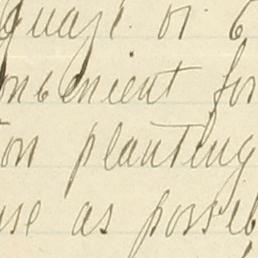 guage or 6
onvenient for
on planting
use as possib